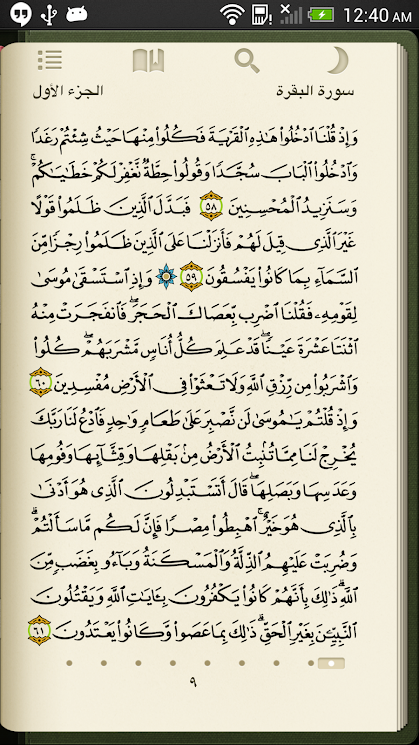 12:40 AM
سورة البقرة
الجزء الأول
وَإِذْ قُلْنَا ٱدْخُلُوا۟ هَٰذِهِ ٱلْقَرْيَةَ فَكُلُوا۟ مِنْهَا حَيْثُ شِئْتُمْ رَغَدًا
وَٱدْخُلُوا۟ ٱلْبَابَ سُجَّدًا وَقُولُوا۟ حِطَّةٌ نَّغْفِرْ لَكُمْ خَطَٰيَٰكُمْ ۚ
وَسَنَزِيدُ ٱلْمُحْسِنِينَ ٥٨ فَبَدَّلَ ٱلَّذِينَ ظَلَمُوا۟ قَوْلًا
غَيْرَ ٱلَّذِى قِيلَ لَهُمْ فَأَنزَلْنَا عَلَى ٱلَّذِينَ ظَلَمُوا۟ رِجْزًا مِّنَ
ٱلسَّمَآءِ بِمَا كَانُوا۟ يَفْسُقُونَ ٥٩ ۞ وَإِذِ ٱسْتَسْقَىٰ مُوسَىٰ
لِقَوْمِهِۦ فَقُلْنَا ٱضْرِب بِّعَصَاكَ ٱلْحَجَرَ ۖ فَٱنفَجَرَتْ مِنْهُ
ٱثْنَتَا عَشْرَةَ عَيْنًا ۖ قَدْ عَلِمَ كُلُّ أُنَاسٍ مَّشْرَبَهُمْ ۖ كُلُوا۟
وَٱشْرَبُوا۟ مِن رِّزْقِ ٱللَّهِ وَلَا تَعْثَوْا۟ فِى ٱلْأَرْضِ مُفْسِدِينَ ٦٠
وَإِذْ قُلْتُمْ يَٰمُوسَىٰ لَن نَّصْبِرَ عَلَىٰ طَعَامٍ وَٰحِدٍ فَٱدْعُ لَنَا رَبَّكَ
يُخْرِجْ لَنَا مِمَّا تُنۢبِتُ ٱلْأَرْضُ مِنۢ بَقْلِهَا وَقِثَّآئِهَا وَفُومِهَا
وَعَدَسِهَا وَبَصَلِهَا ۖ قَالَ أَتَسْتَبْدِلُونَ ٱلَّذِى هُوَ أَدْنَىٰ
بِٱلَّذِى هُوَ خَيْرٌ ۚ ٱهْبِطُوا۟ مِصْرًا فَإِنَّ لَكُم مَّا سَأَلْتُمْ ۗ
وَضُرِبَتْ عَلَيْهِمُ ٱلذِّلَّةُ وَٱلْمَسْكَنَةُ وَبَآءُو بِغَضَبٍ مِّنَ
ٱللَّهِ ۗ ذَٰلِكَ بِأَنَّهُمْ كَانُوا۟ يَكْفُرُونَ بِـَٔايَٰتِ ٱللَّهِ وَيَقْتُلُونَ
ٱلنَّبِيِّـۧنَ بِغَيْرِ ٱلْحَقِّ ۗ ذَٰلِكَ بِمَا عَصَوا۟ وَّكَانُوا۟ يَعْتَدُونَ ٦١
٩